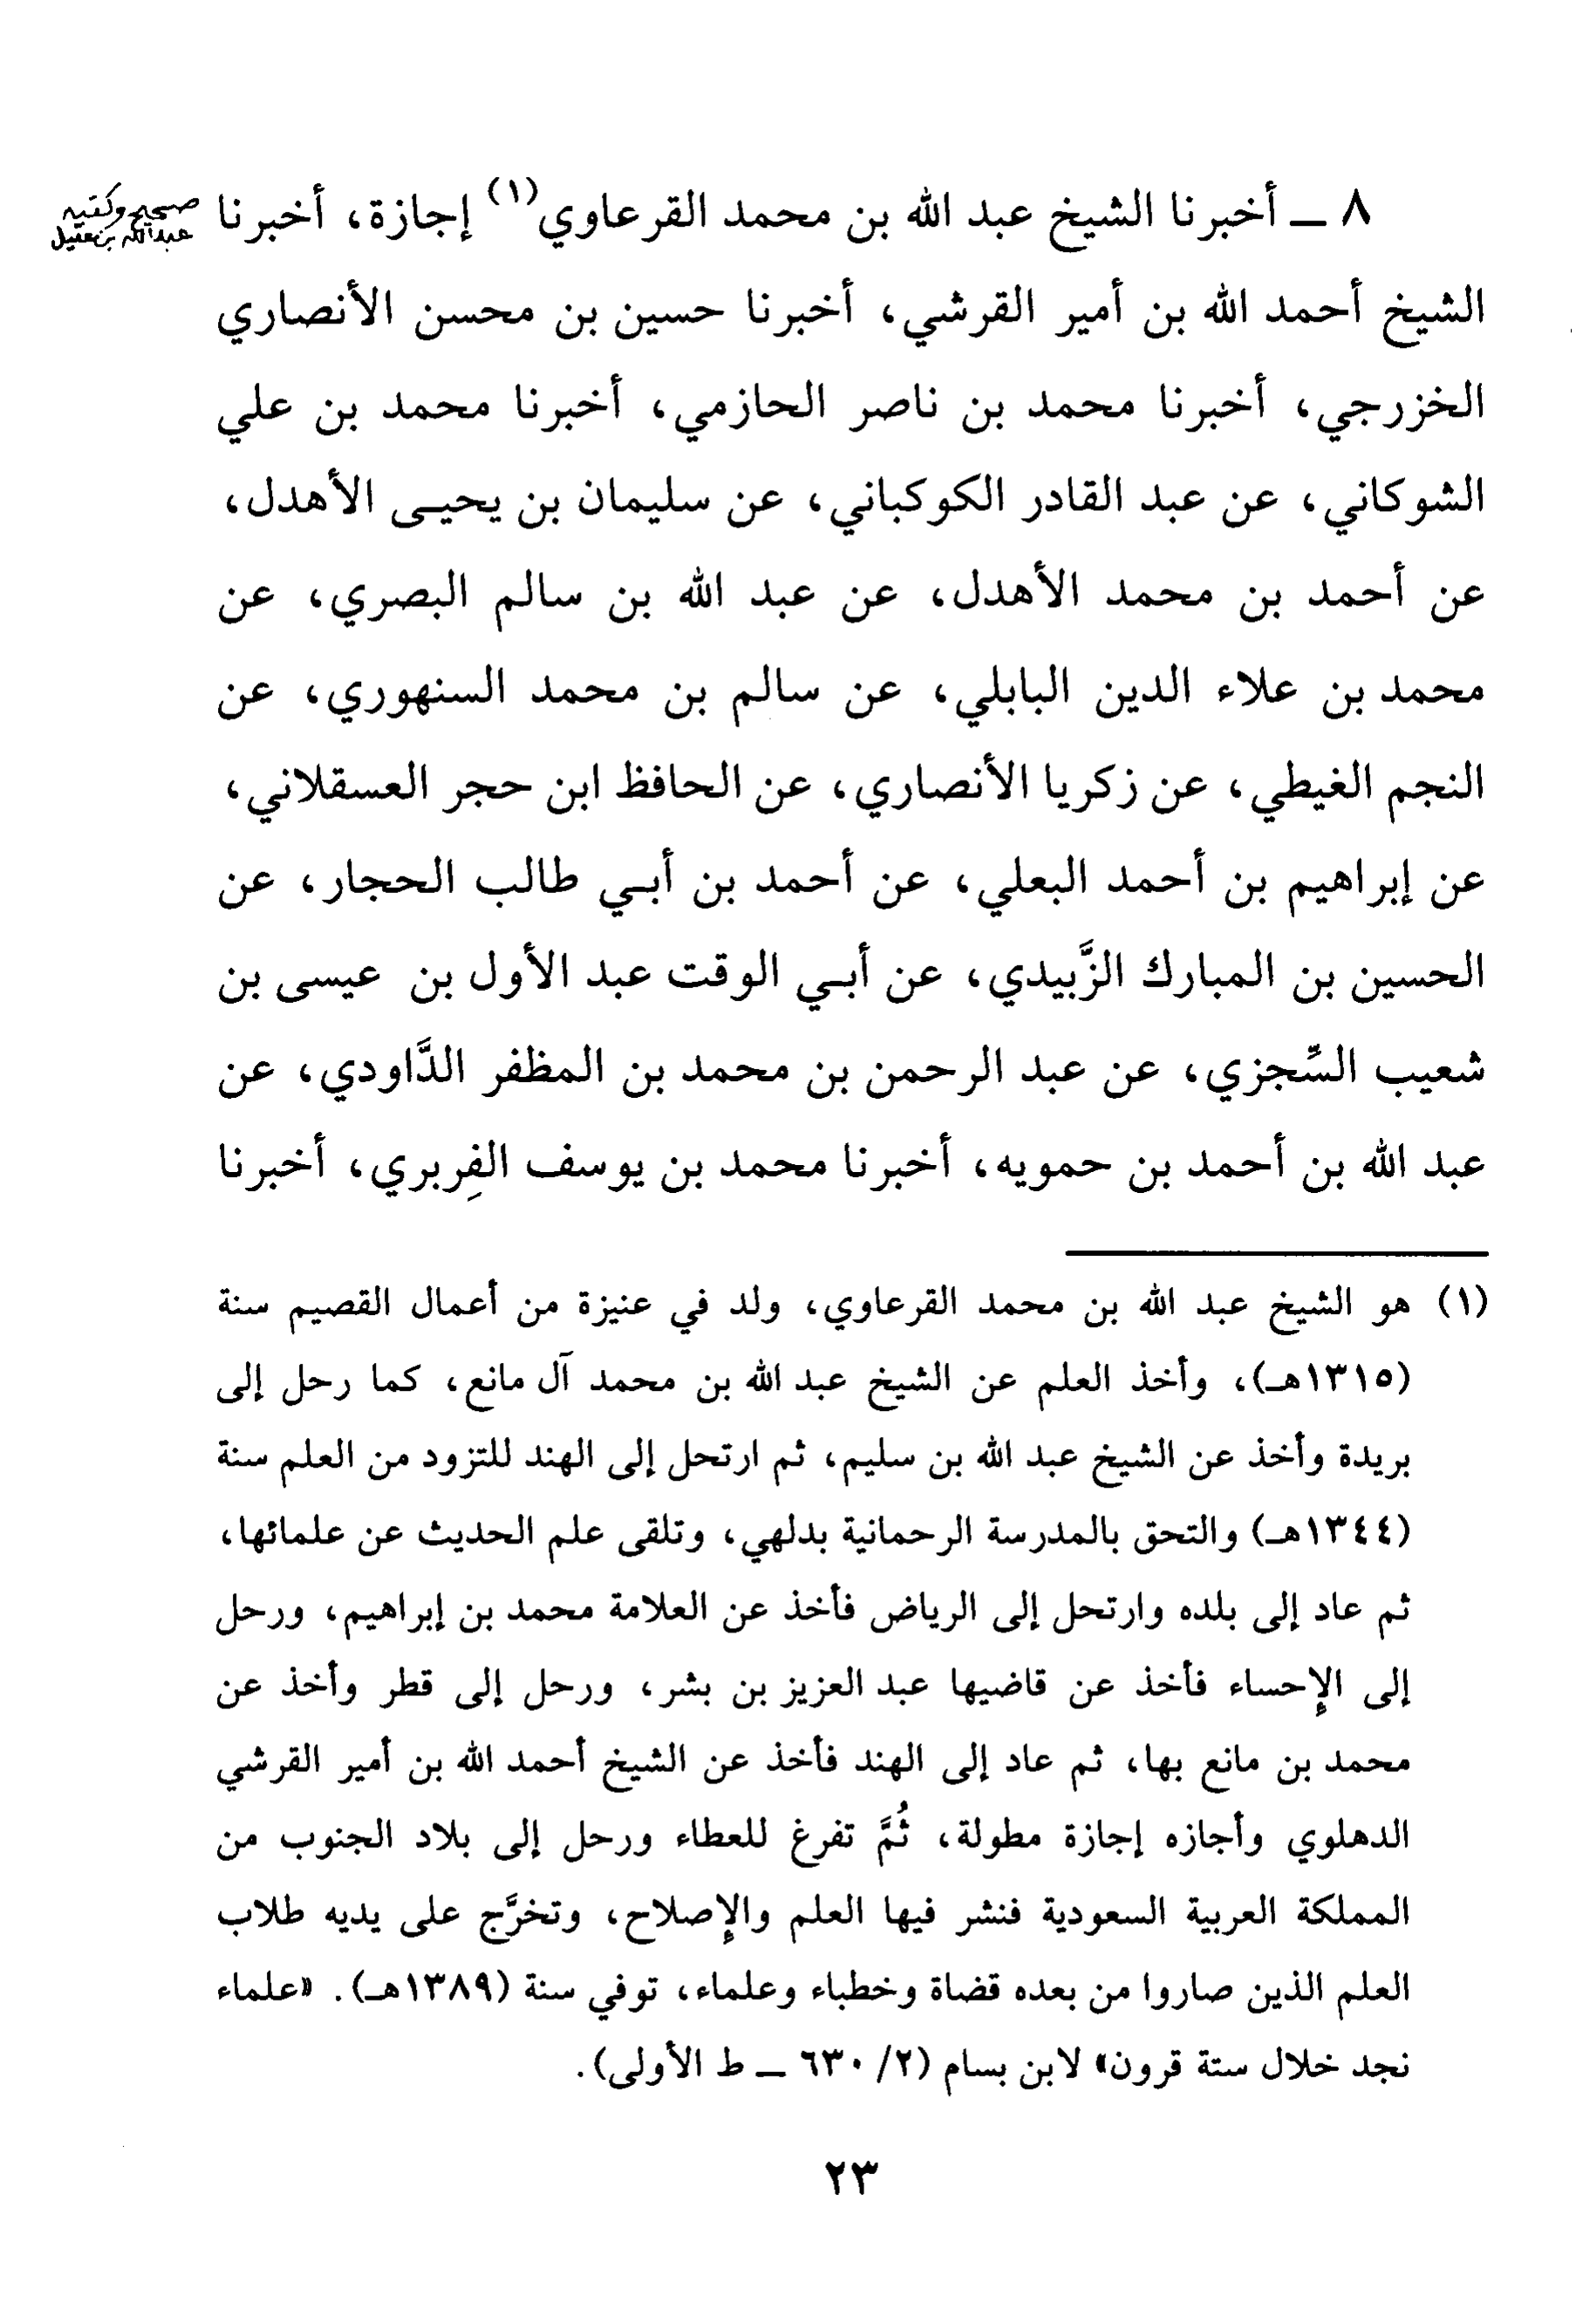 ٨ ــ أخبرنا الشيخ عبد الله بن محمد القرعاوي(١) إجازة، أخبرنا
صحيح وكتبه
عبدالله بن عقيل
الشيخ أحمد الله بن أمير القرشي، أخبرنا حسين بن محسن الأنصاري
الخزرجي، أخبرنا محمد بن ناصر الحازمي، أخبرنا محمد بن علي
الشوكاني، عن عبد القادر الكوكباني، عن سليمان بن يحيـى الأهدل،
عن أحمد بن محمد الأهدل، عن عبد الله بن سالم البصري، عن
محمد بن علاء الدين البابلي، عن سالم بن محمد السنهوري، عن
النجم الغيطي، عن زكريا الأنصاري، عن الحافظ ابن حجر العسقلاني،
عن إبراهيم بن أحمد البعلي، عن أحمد بن أبـي طالب الحجار، عن
الحسين بن المبارك الزَّبيدي، عن أبـي الوقت عبد الأول بن عيسى بن
شعيب السِّجزي، عن عبد الرحمن بن محمد بن المظفر الدَّاودي، عن
عبد الله بن أحمد بن حمويه، أخبرنا محمد بن يوسف الفِربري، أخبرنا
(١) هو الشيخ عبد الله بن محمد القرعاوي، ولد في عنيزة من أعمال القصيم سنة
(١٣١٥هـ)، وأخذ العلم عن الشيخ عبد الله بن محمد آل مانع، كما رحل إلى
بريدة وأخذ عن الشيخ عبد الله بن سليم، ثم ارتحل إلى الهند للتزود من العلم سنة
(١٣٤٤هـ) والتحق بالمدرسة الرحمانية بدلهي، وتلقى علم الحديث عن علمائها،
ثم عاد إلى بلده وارتحل إلى الرياض فأخذ عن العلامة محمد بن إبراهيم، ورحل
إلى الإحساء فأخذ عن قاضيها عبد العزيز بن بشر، ورحل إلى قطر وأخذ عن
محمد بن مانع بها، ثم عاد إلى الهند فأخذ عن الشيخ أحمد الله بن أمير القرشي
الدهلوي وأجازه إجازة مطولة، ثُمَّ تفرغ للعطاء ورحل إلى بلاد الجنوب من
المملكة العربية السعودية فنشر فيها العلم والإصلاح، وتخرَّج على يديه طلاب
العلم الذين صاروا من بعده قضاة وخطباء وعلماء، توفي سنة (١٣٨٩هـ). «علماء
نجد خلال ستة قرون» لابن بسام (٢/ ٦٣٠ ــ ط الأولى).
٢٣